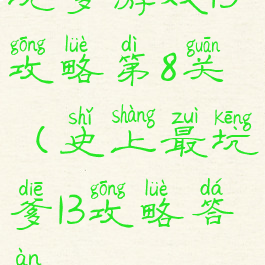 gōng lüè dì guān
攻略第8关
shǐ shàng zuì kēng
(史上最坑
diē gōng lüè dá
爹13攻略答
àn